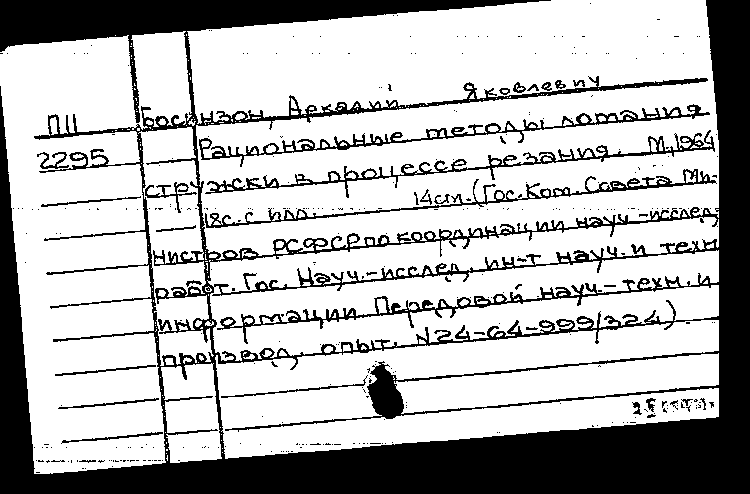 ПII Босинзон, Аркадий Яковлевич
2295 Рациональные методы ломания
стружки в процессе резания. М., 1964
18с. с илл. 14см. (Гос. Ком. Совета Ми-
нистров РСФСР по координации науч-исслед.
работ. Гос. Науч.-исслед. ин-т науч. и техн.
информации Передовой науч-техн. и
производ. опыт. N24-64-999/324)